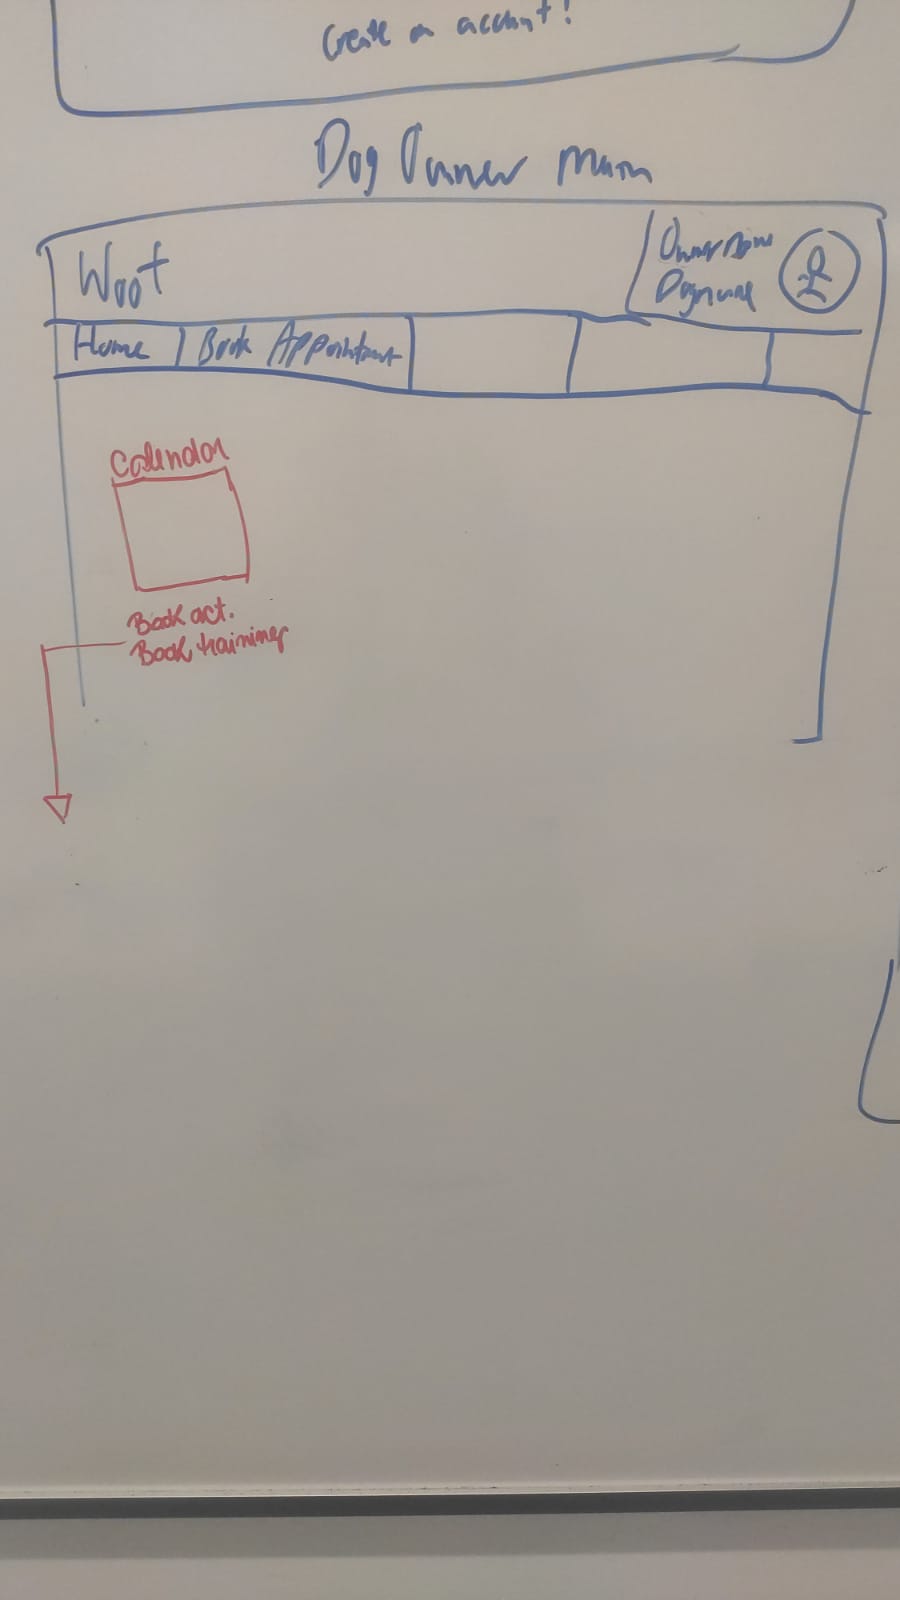 Create an account!
Dog Owner Main
Woof
Owner Name
Dog name
Home
Book Appointment
Calendar
Book act.
Book training